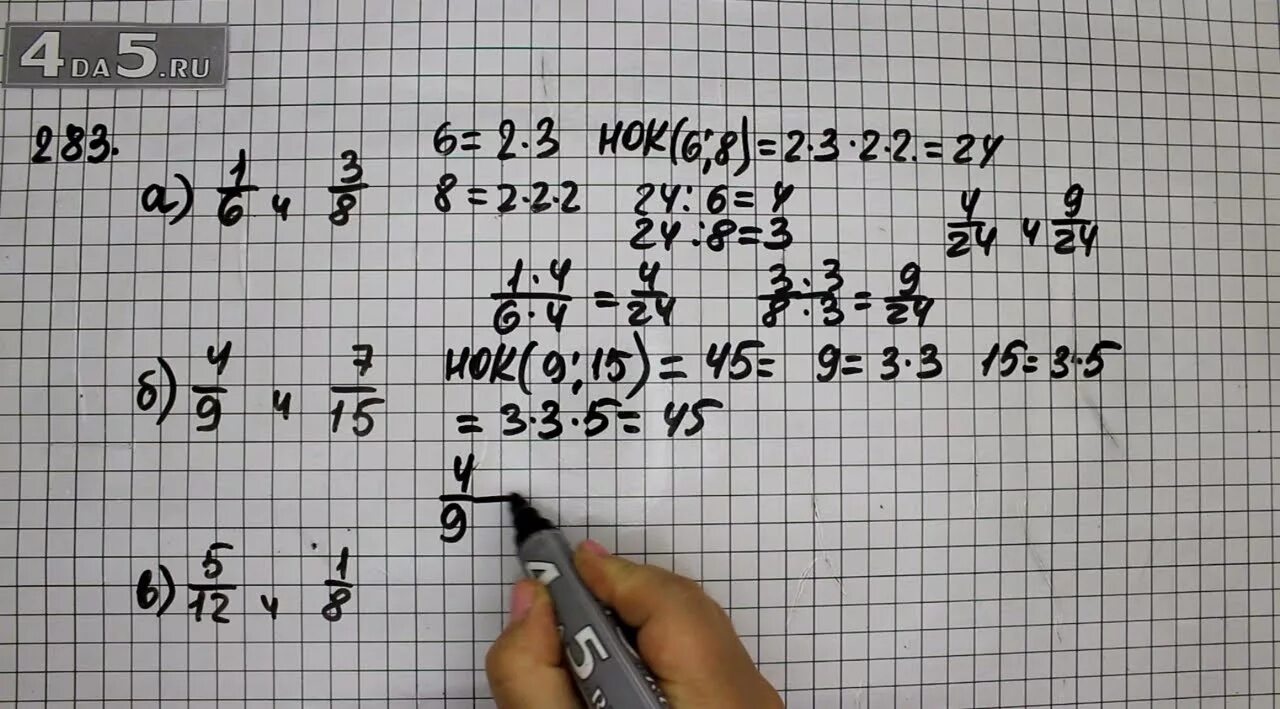 4DA5.RU
283.
а) 1/6 и 3/8 6=2·3 НОК(6;8)=2·3·2·2.=24
8=2·2·2 24:6=4
24:8=3 4/24 и 9/24
1·4/6·4 = 4/24 3·3/8·3 = 9/24
б) 4/9 и 7/15 НОК(9;15)=45= 9=3·3 15=3·5
=3·3·5=45
4/9
в) 5/12 и 1/8
4
5